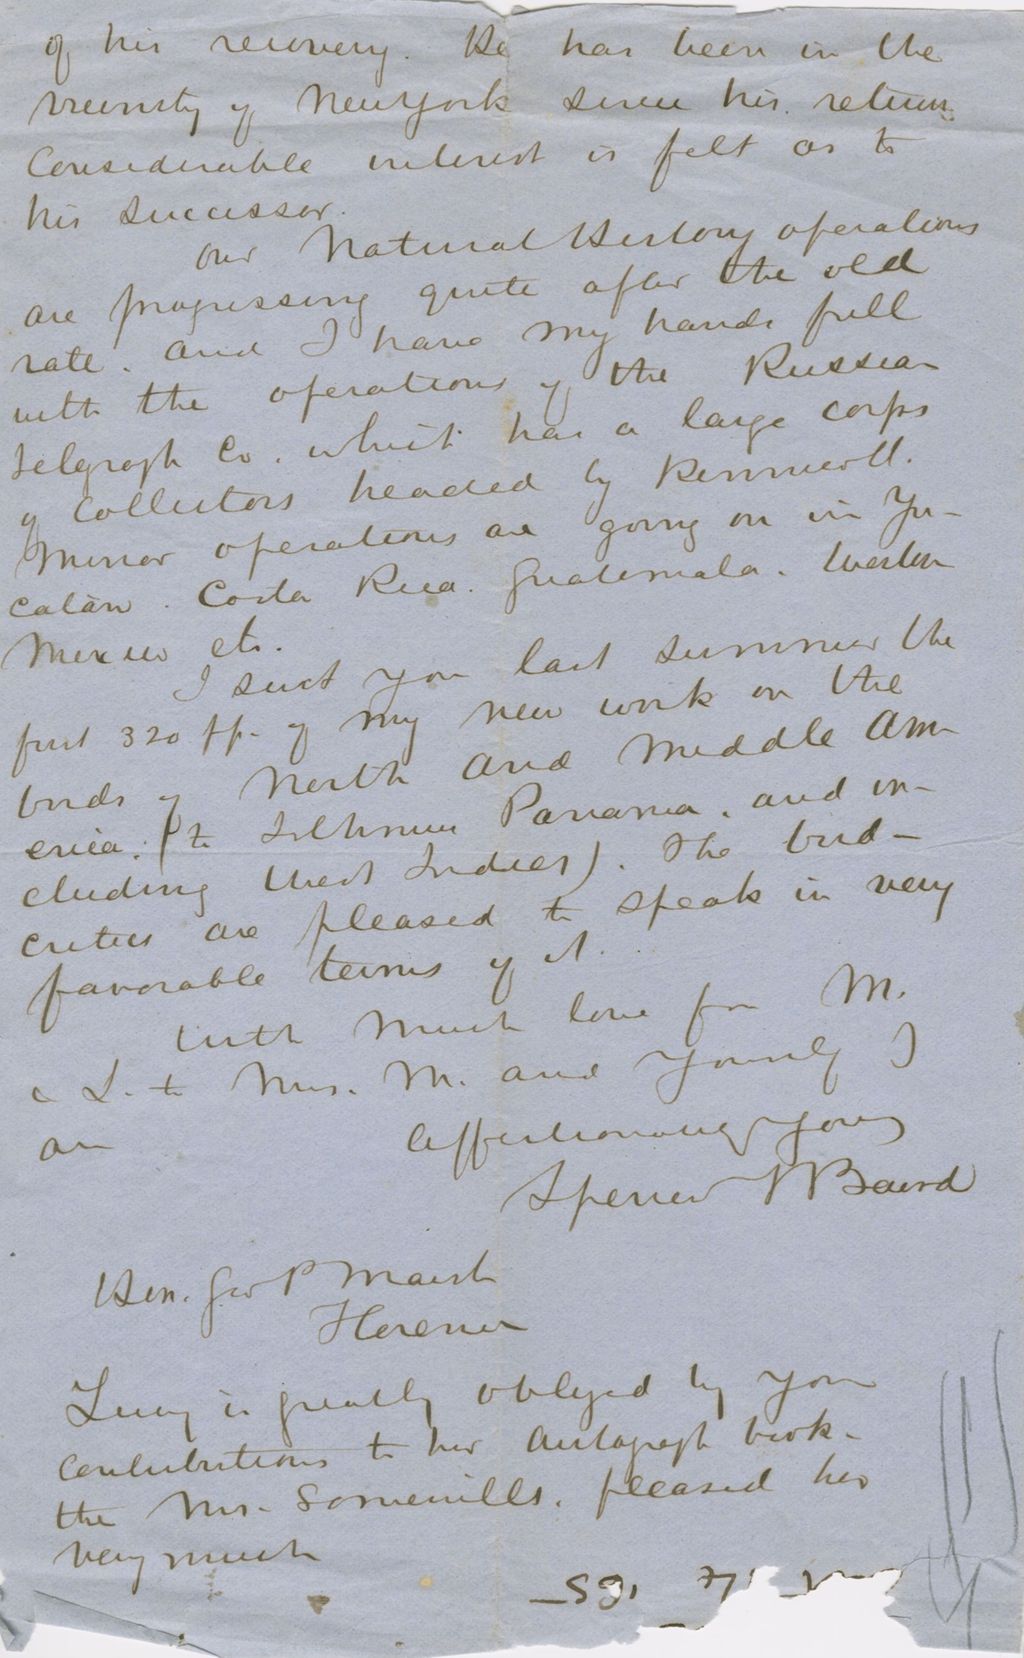 of his recovery. He has been in the
vicinity of New York since his return.
Considerable interest is felt as to
his successor.
Our Natural History operations
are progressing quite after the old
rate. and I have my hands full
with the operations of the Russian
telegraph Co. which has a large corps
of Collectors headed by Kennicott.
Minor operations are going on in Yu-
catan. Costa Rica. Guatemala. Western
Mexico etc.
I sent you last summer the
first 320 pp. of my new work on the
birds of North and Middle Am-
erica. (to Isthmus Panama. and in-
cluding West Indies). The bird-
critics are pleased to speak in very
favorable terms of it.
With much love from M.
& L. to Mrs. M. and yourself I
am Affectionately Yours
Spencer F Baird
Hon. Geo P Marsh
Florence
Lucy is greatly obliged by your
contributions to her Autograph book.
the Mrs. Somervilles. pleased her
very much